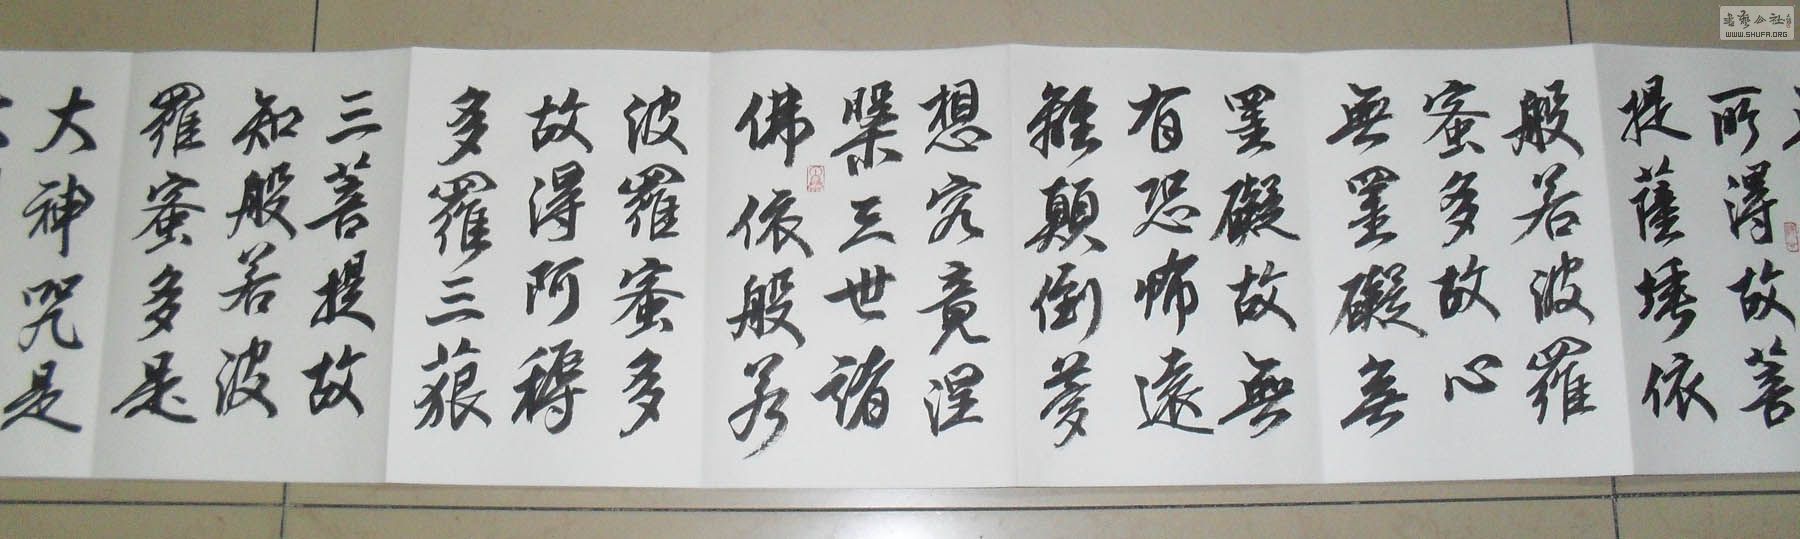 所得故菩
提薩埵依
般若波羅
蜜多故心
無罣礙無
罣礙故無
有恐怖遠
離顛倒夢
想究竟涅
槃三世諸
佛依般若
波羅蜜多
故得阿耨
多羅三藐
三菩提故
知般若波
羅蜜多是
大神咒是
書藝公社
WWW.SHUFA.ORG